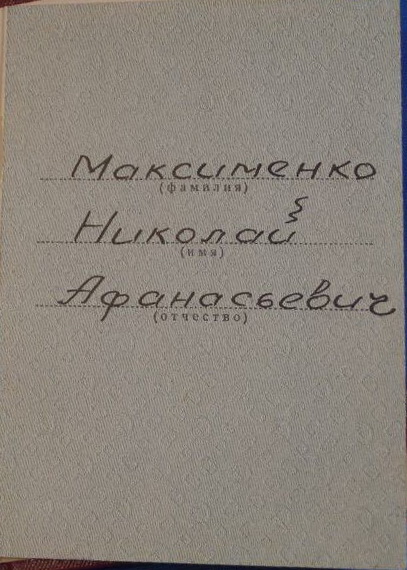 Максименко
(фамилия)
Николай
(имя)
Афанасьевич
(отчество)